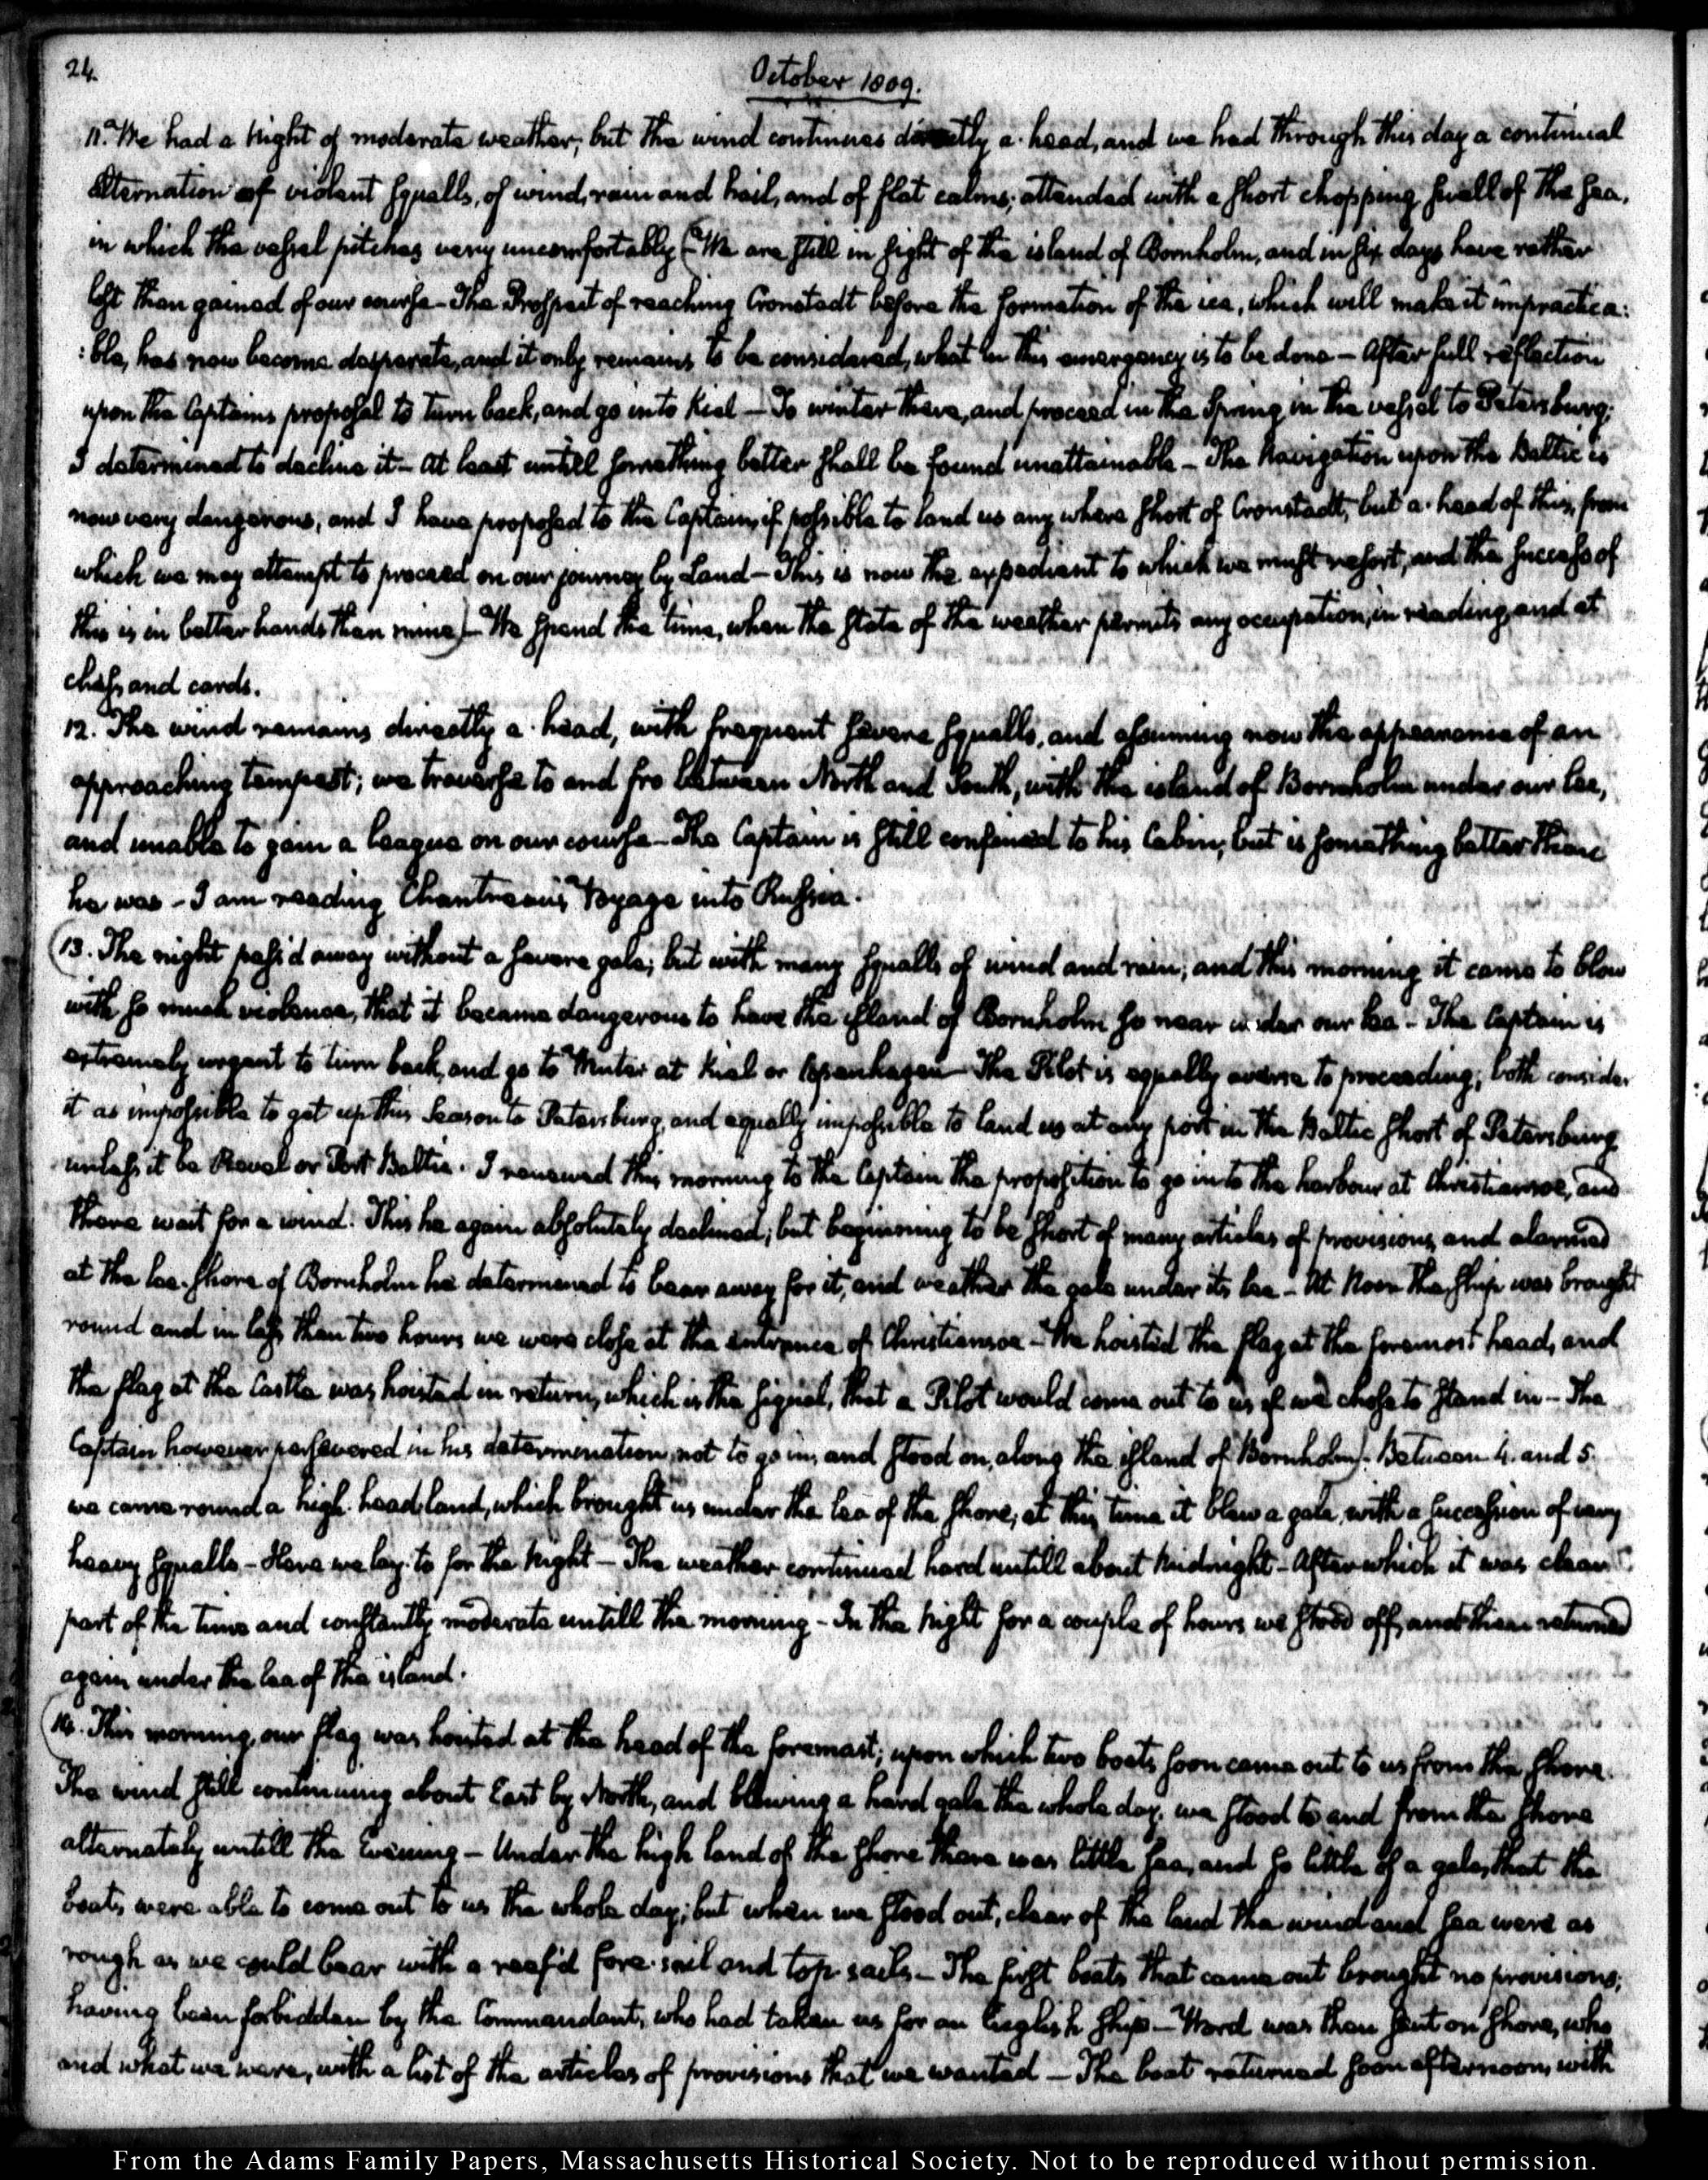 24.
October 1809.
11. We had a Night of moderate weather; but the wind continues directly a-head, and we had through this day a continual
alternation of violent squalls, of wind, rain and hail, and of flat calms; attended with a short chopping swell of the sea,
in which the vessel pitches very uncomfortably (We are still in sight of the island of Bornholm, and in six days have rather
lost than gained of our course - The Prospect of reaching Cronstadt before the formation of the ice, which will make it impractica:
:ble, has now become desperate, and it only remains to be considered, what in this emergency is to be done - After full reflection
upon the Captains proposal to turn back, and go into Kiel - To winter there, and proceed in the Spring in the vessel to Petersburg;
I determined to decline it - At least untill something better shall be found unattainable - The Navigation upon the Baltic is
now very dangerous, and I have proposed to the Captain, if possible to land us any where short of Cronstadt, but a-head of this, from
which we may attempt to proceed on our journey by Land - This is now the expedient to which we must resort, and the success of
this is in better hands than mine) - We spend the time, when the state of the weather permits any occupation, in reading, and at
chess, and cards.
12. The wind remains directly a-head, with frequent severe squalls, and assuming now the appearance of an
approaching tempest; we traverse to and fro between North and South, with the island of Bornholm under our lee,
and unable to gain a league on our course - The Captain is still confined to his Cabin; but is something better than
he was - I am reading Chantreau's Voyage into Russia.
(13. The night pass'd away without a severe gale; but with many squalls of wind and rain; and this morning it came to blow
with so much violence, that it became dangerous to have the island of Bornholm so near under our lee - The Captain is
extremely urgent to turn back, and go to Winter at Kiel or Copenhagen - The Pilot is equally averse to proceeding; both consider
it as impossible to get up this Season to Petersburg, and equally impossible to land us at any port in the Baltic short of Petersburg
unless it be Reval or Port Baltic. I renewed this morning to the Captain the proposition to go into the harbour at Christiansoe, and
there wait for a wind. This he again absolutely declined; but beginning to be short of many articles of provisions, and alarmed
at the lee-shore of Bornholm he determined to bear away for it, and weather the gale under its lee - At Noon the ship was brought
round and in less than two hours we were close at the entrance of Christiansoe - We hoisted the flag at the foremost head, and
the flag at the Castle was hoisted in return, which is the signal, that a Pilot would come out to us if we chose to stand in - The
Captain however persevered in his determination not to go in, and stood on, along the island of Bornholm). Between 4. and 5.
we came round a high head land, which brought us under the lee of the shore; at this time it blew a gale, with a succession of very
heavy squalls - Here we lay-to for the Night - The weather continued hard untill about Midnight - After which it was clear
part of the time and constantly moderate untill the morning - In the Night for a couple of hours we stood off, and then returned
again under the lee of the island.
(14. This morning, our flag was hoisted at the head of the foremast; upon which two boats soon came out to us from the shore.
The wind still continuing about East by North, and blowing a hard gale the whole day, we stood to and from the shore
alternately untill the Evening - Under the high land of the shore there was little sea, and so little of a gale, that the
boats were able to come out to us the whole day; but when we stood out, clear of the land the wind and sea were as
rough as we could bear with a reef'd fore-sail and top-sails - The first boats that came out brought no provisions;
having been forbidden by the Commandant, who had taken us for an English ship - Word was then sent on shore, who
and what we were, with a list of the articles of provisions that we wanted - The boat returned soon afternoon, with
From the Adams Family Papers, Massachusetts Historical Society. Not to be reproduced without permission.